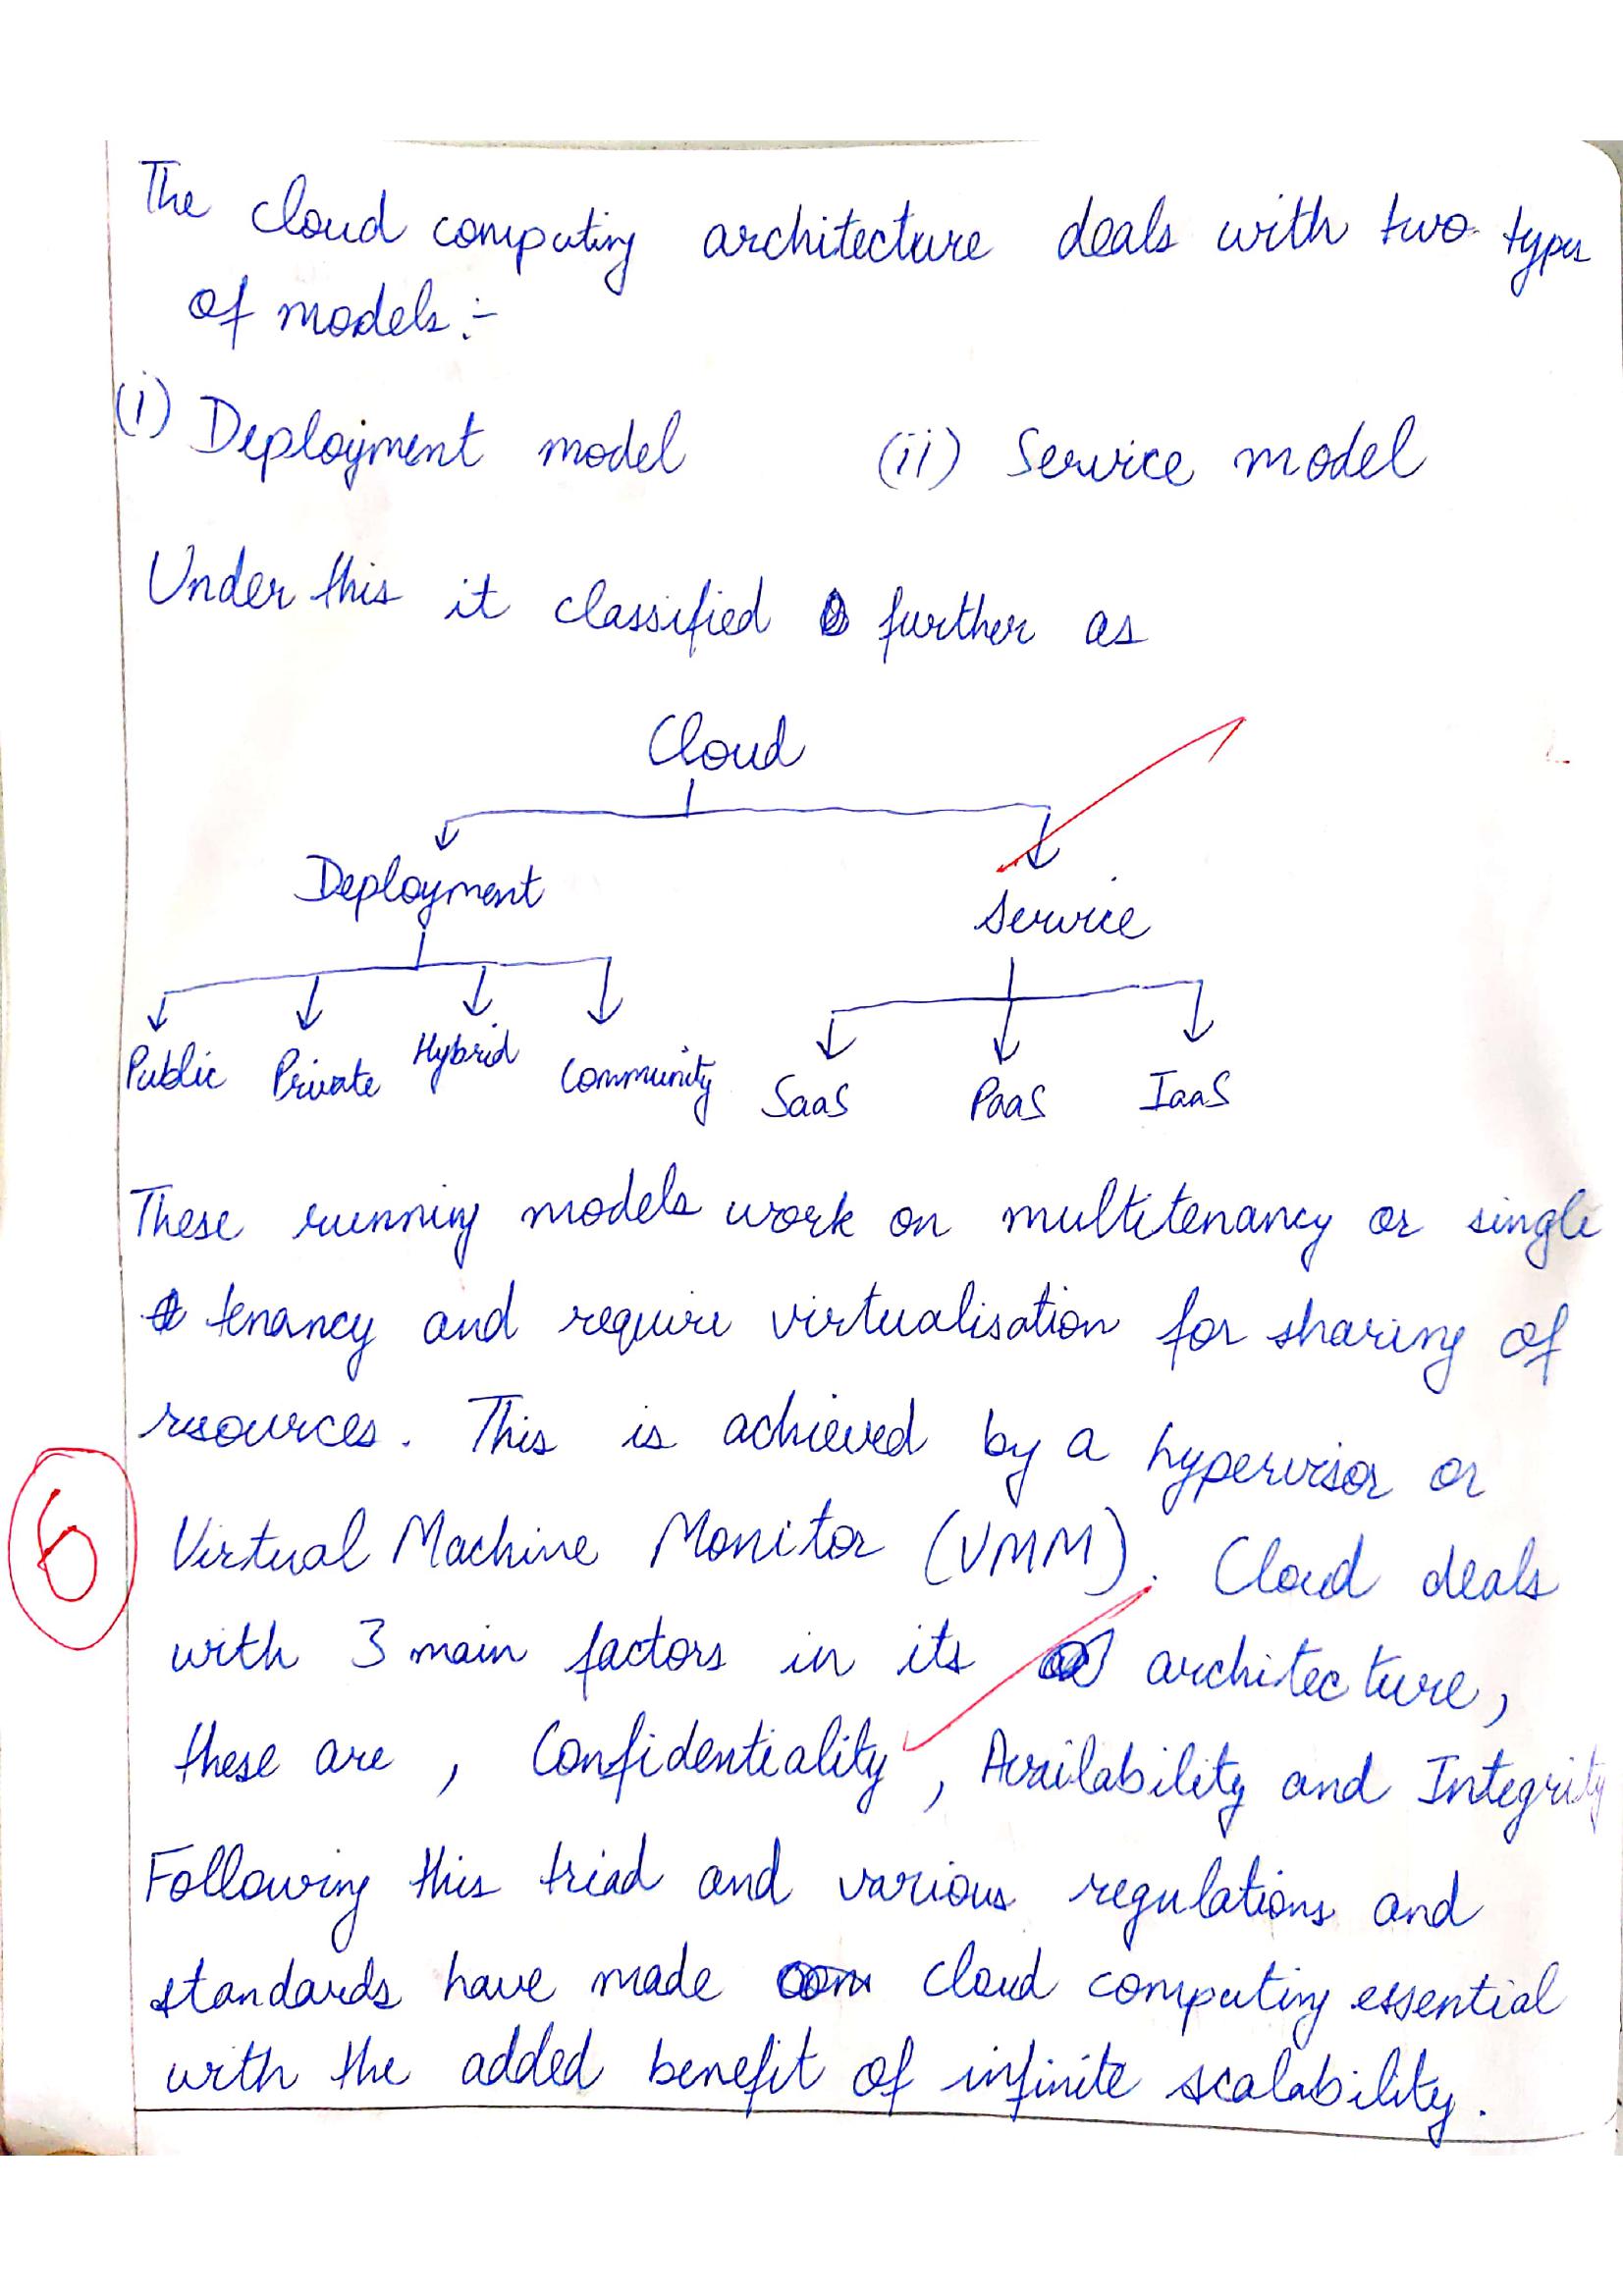 The cloud computing architecture deals with two types
of models :-
(i) Deployment model (ii) Service model
Under this it classified further as
Cloud
Deployment Service
Public Private Hybrid Community SaaS PaaS IaaS
These running models work on multitenancy or single
tenancy and require virtualisation for sharing of
resources. This is achieved by a hypervisor or
6
Virtual Machine Monitor (VMM). Cloud deals
with 3 main factors in its architecture,
these are , Confidentiality , Availability and Integrity
Following this triad and various regulations and
standards have made cloud computing essential
with the added benefit of infinite scalability.